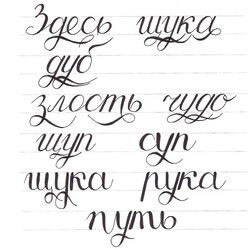 Здесь щука
дуб
злость чудо
щуп суп
щука рука
путь